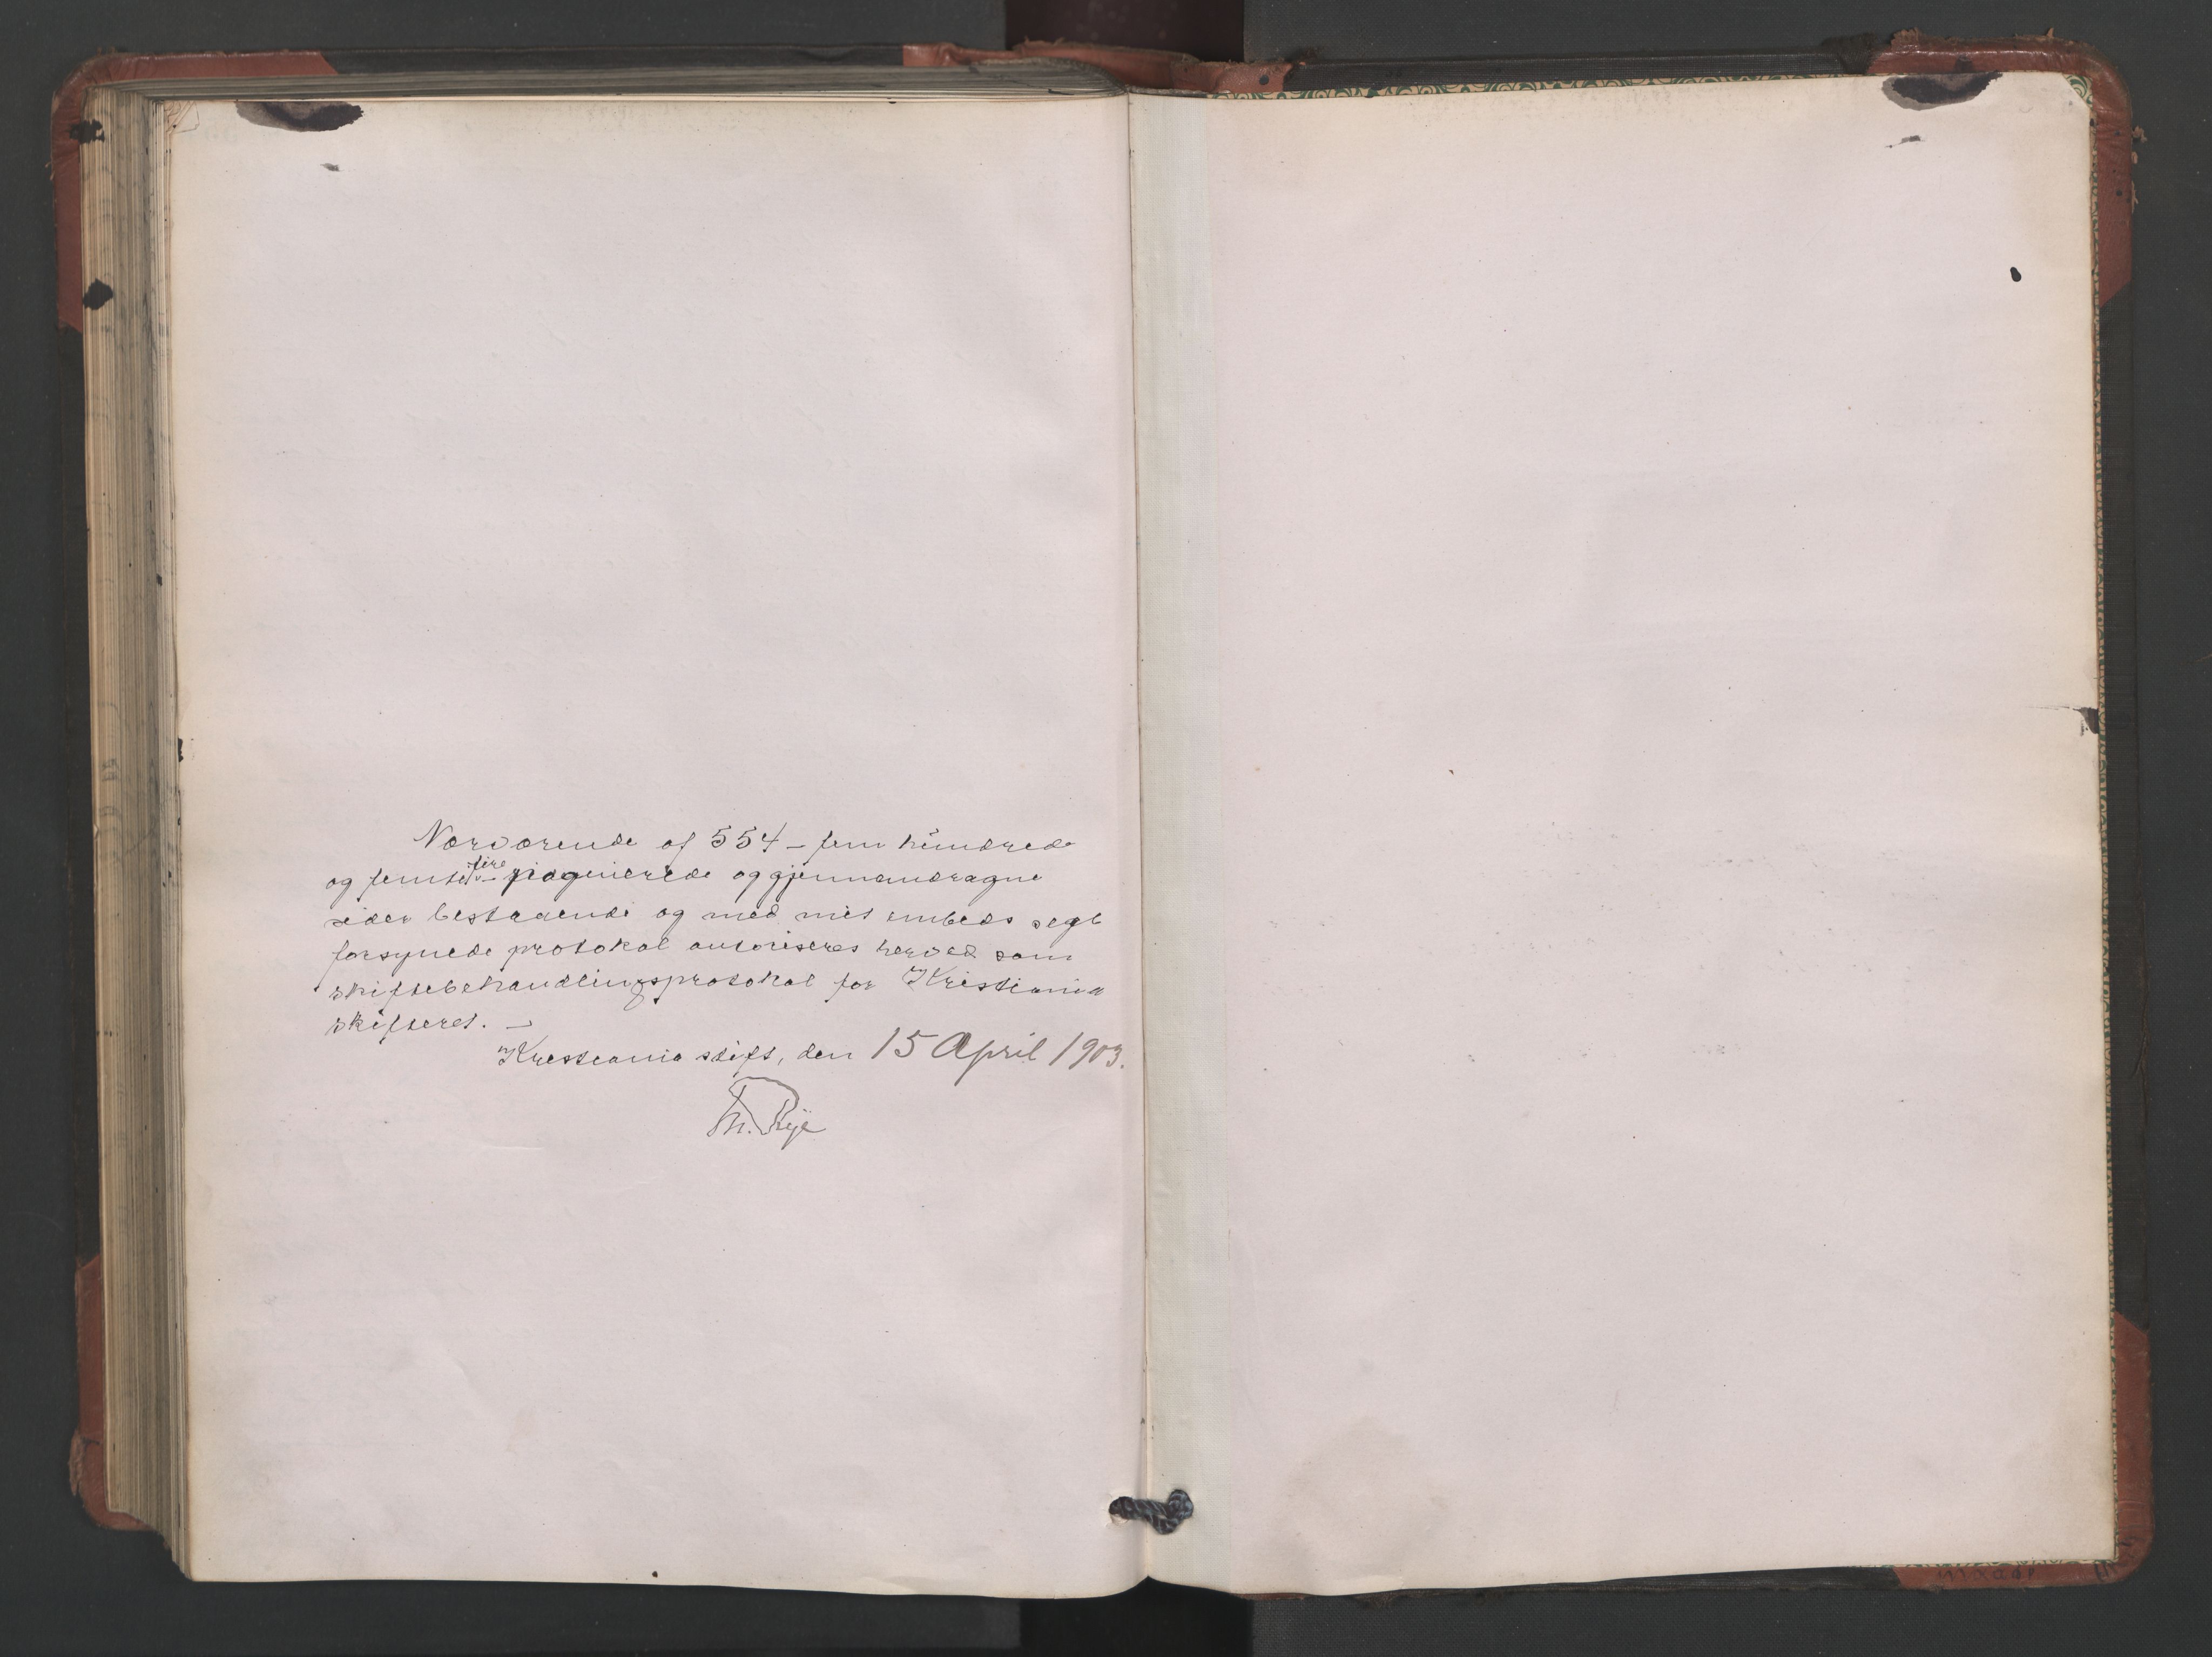 Nærværende af 554 – fem hundrede
og femti fire – paginerede og gjennemdragne
sider bestaaende og med mit embeds segl
forsynede protokol autoriseres herved som
skiftebehandlingsprotokol for Kristiania
skifteret. –
Kristiania stift, den 15 April 1903.
Th. Rye